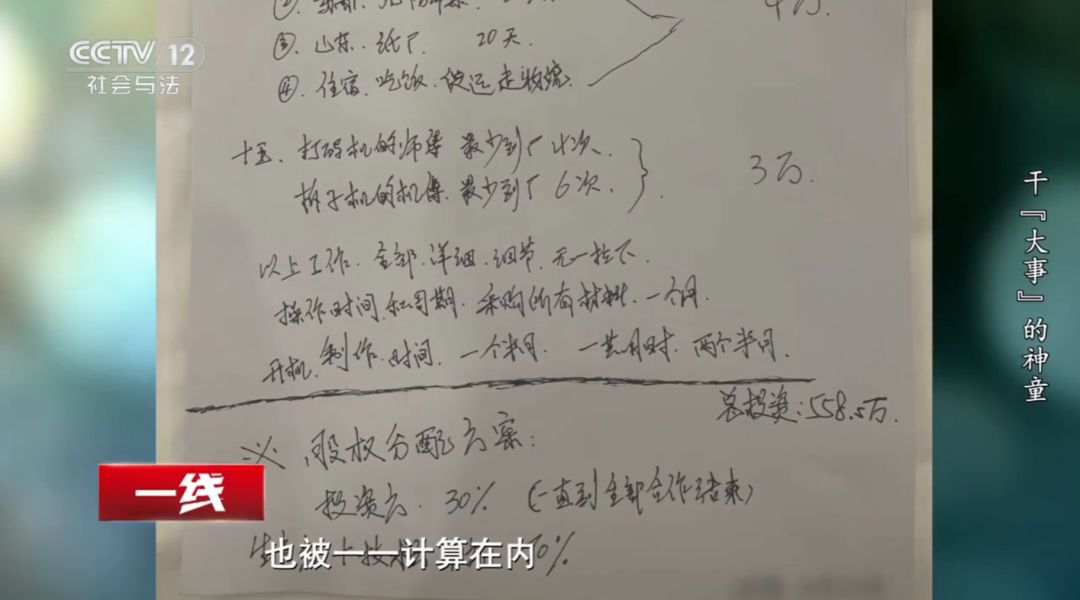 CCTV 12
社会与法
4万.
③. 山东. 纸厂 20天.
④. 住宿. 吃饭.
十五、打码机的师傅 最少到厂 4次、
3万.
机的机 最少到厂 6次、
以上工作. 全部. 详细. 细节. 无一拉下.
操作时间和周期. 采购所有材料. 一个月.
开机. 制作. 时间. 一个半月. 一共用时. 两个半月.
总投资:558.5万.
※、股权分配方案:
投资方. 30% (一直到全部合作结束)
0%
干『大事』的神童
一线
也被一一计算在内